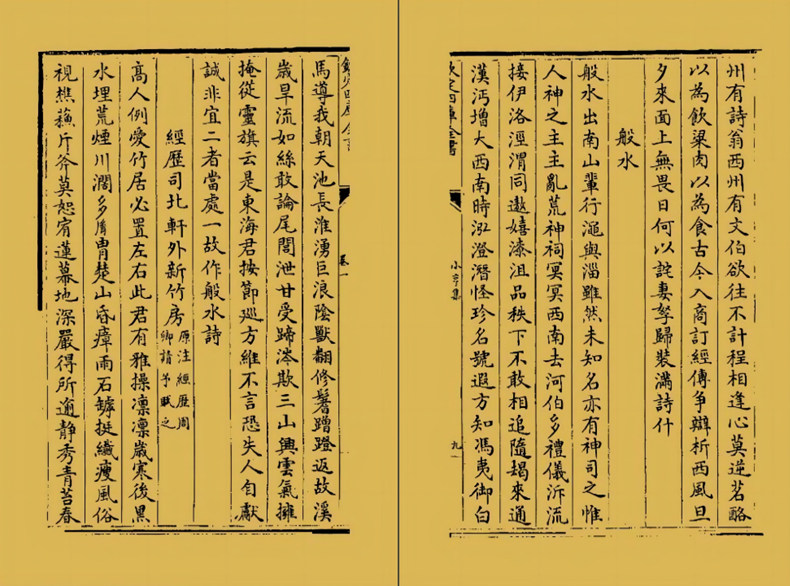 州有詩翁西州有文伯欲往不計程相逢心莫逆茗酪
以為飲粱肉以為食古今入商訂經傳爭辯析西風旦
夕來面上無畏日何以詫妻孥歸裝滿詩什
般水
般水出南山輩行澠與淄雖然未知名亦有神司之惟
人神之主主亂荒神祠冥冥西南去河伯多禮儀泝流
接伊洛涇渭同遨嬉漆沮品秩下不敢相追隨朅來通
漢沔增大西南時泓澄潛怪珍名號遐方知馮夷御白
欽定四庫全書
小亨集
九
卷一
馬導我朝天池長淮湧巨浪陰獸翻修鬐蹭蹬返故溪
歲旱流如絲敢論尾閭泄甘受蹄涔欺三山興雲氣擁
掩從靈旗云是東海君按節巡方維不言恐失人自獻
誠非宜二者當處一故作般水詩
經歷司北軒外新竹房原注經歷周卿請予賦之
高人例愛竹居必置左右此君有雅操凛凛歲寒後黑
水埋荒煙川濶多膺胄楚山昏瘴雨石罅挺纖瘦風俗
視樵蘓斤斧莫恕宥蓮幕地深嚴得所適静秀青苔春